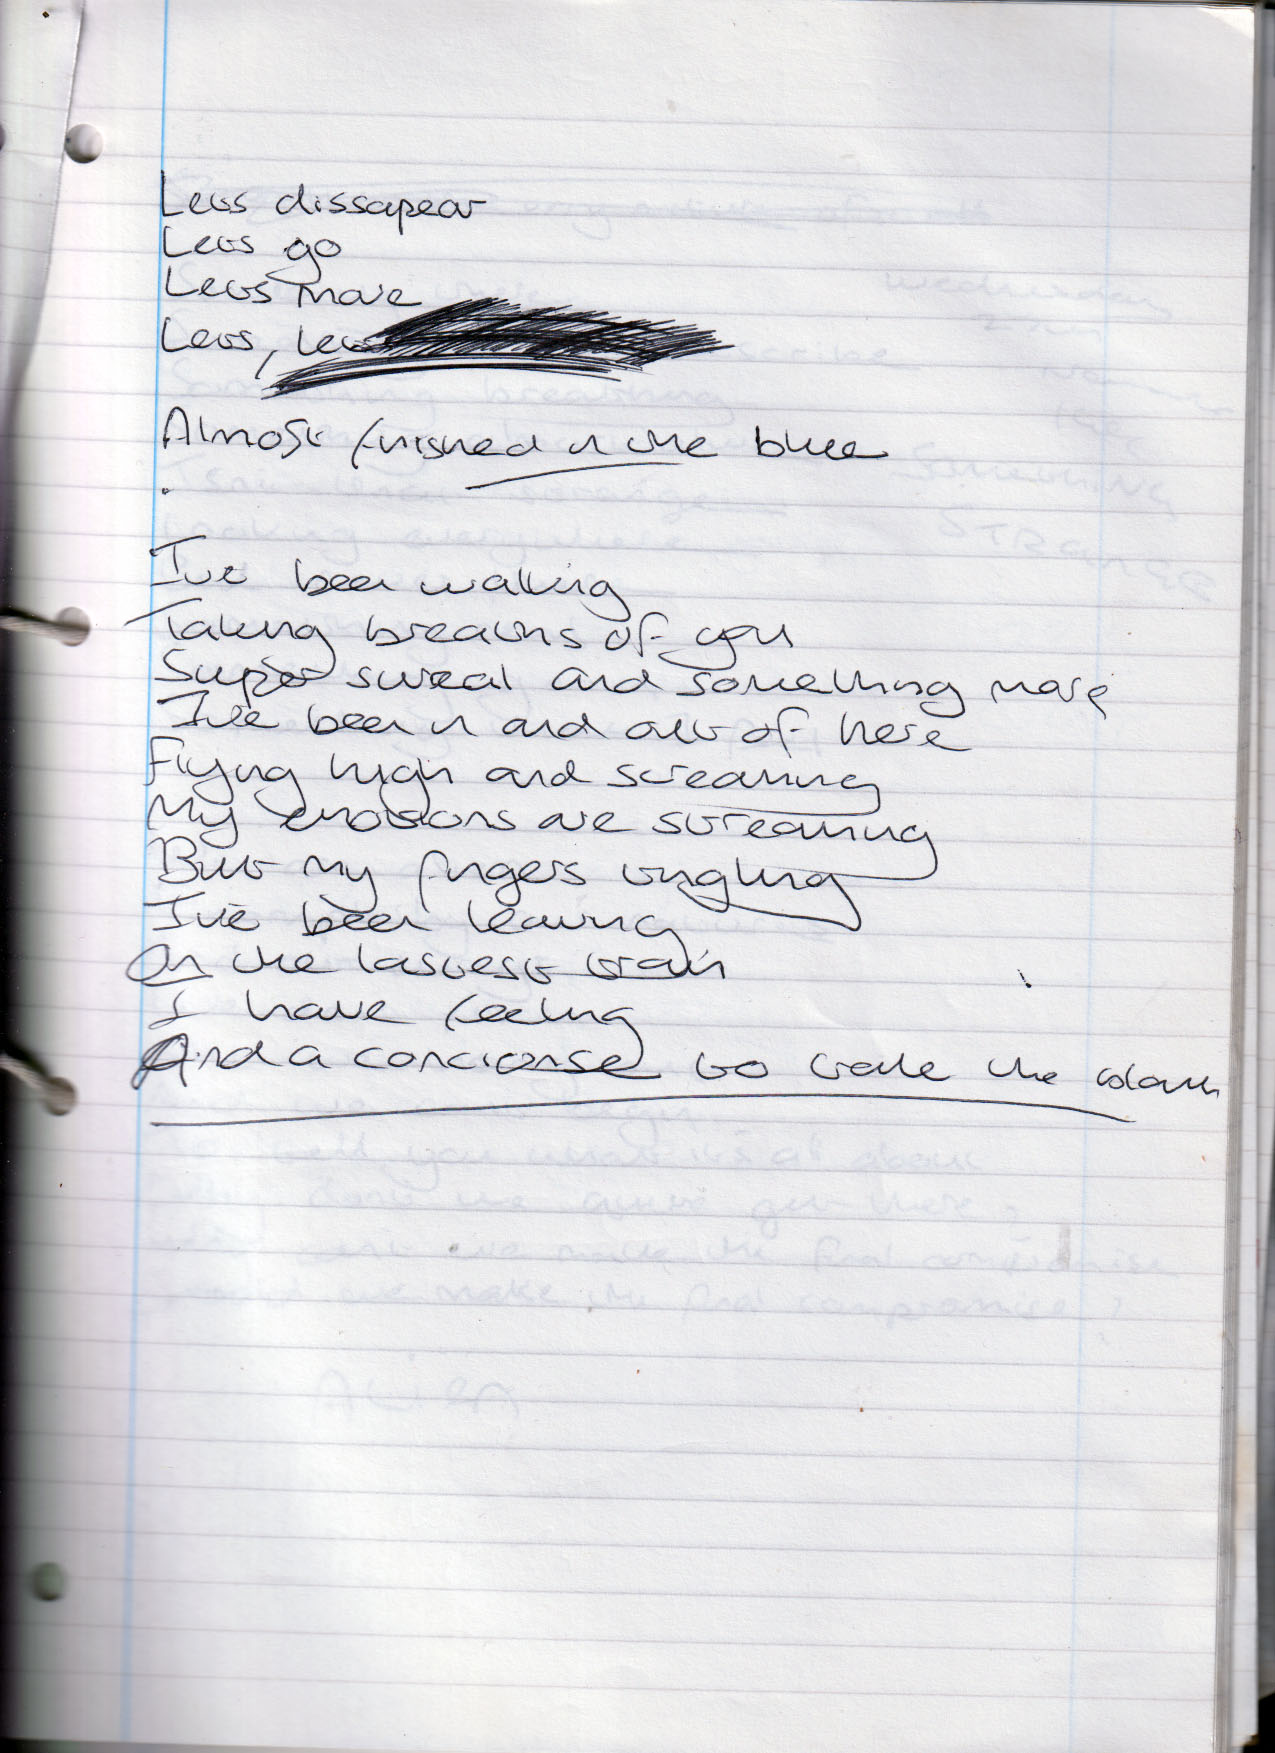 Lets dissapear
Lets go
Lets move
Lets, lets
Almost finished in the blue
I've been walking
Taking breaths of you
Super sureal and something more
I've been in and out of here
Flying high and screaming
My emotions are streaming
But my fingers tingling
I've been leaving
On the lastest train
I have feeling
And a concionse to take the